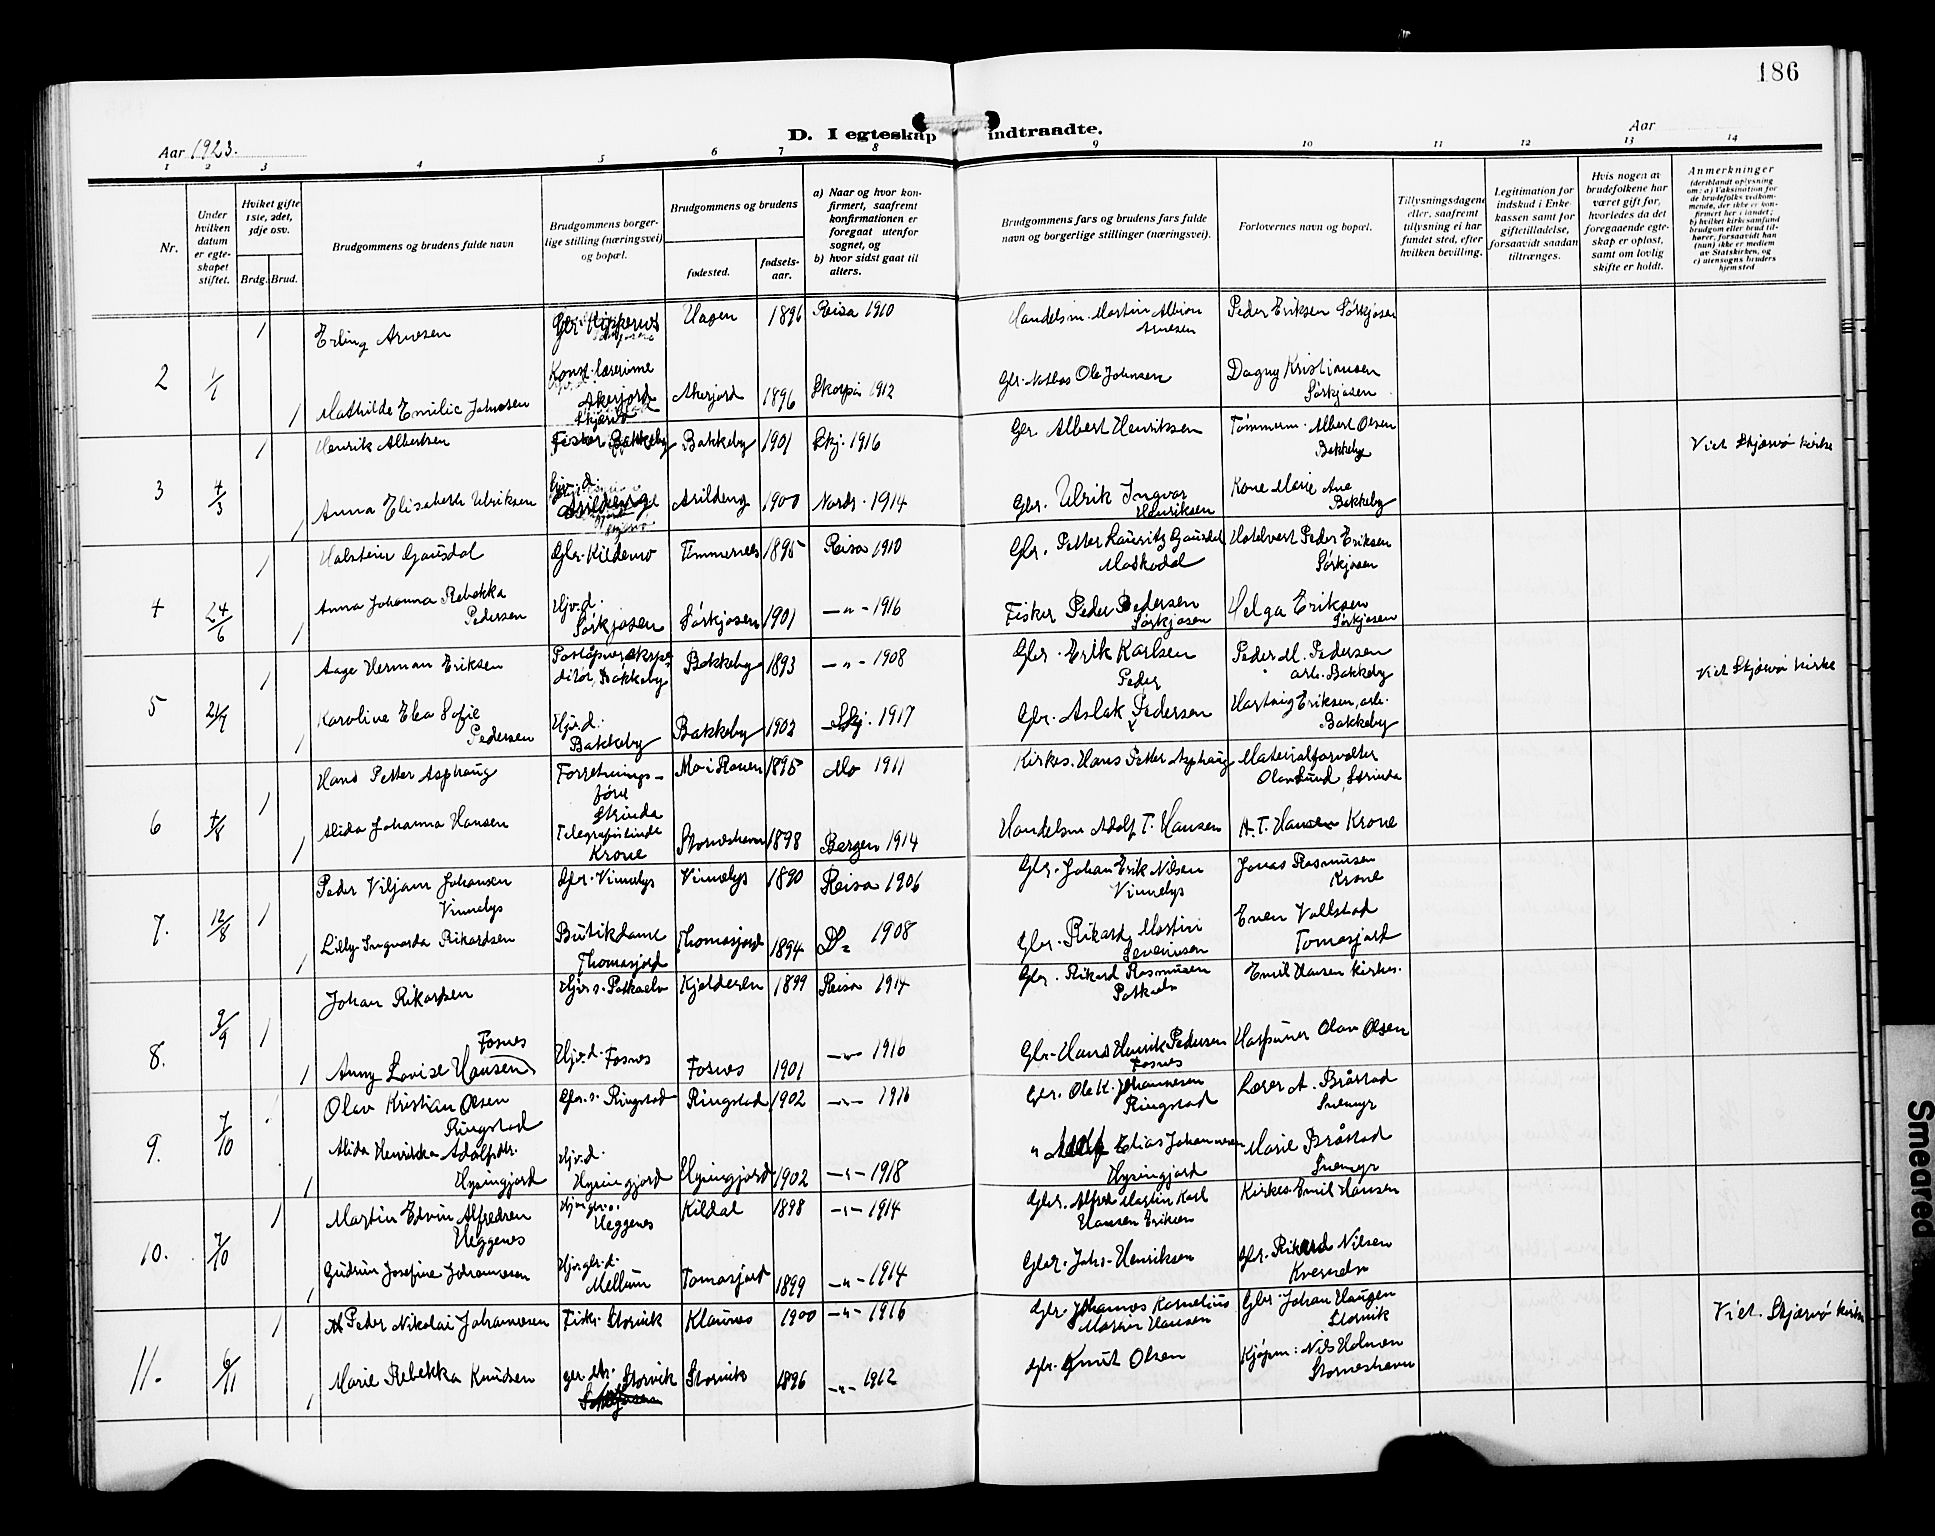 186
D. I egteskap indtraadte.
Aar 1923.
Aar
1 2 3 4 5 6 7 8 9 10 11 12 13 14
Nr.
Under hvilken datum er egteskapet stiftet.
Hviket gifte 1ste, 2det, 3dje osv.
Brdg. Brud.
Brudgommens og brudens fulde navn
Brudgommens borgerlige stilling (næringsvei) og bopæl.
Brudgommens og brudens
fødested.
fødselsaar.
a) Naar og hvor konfirmert, saafremt konfirmationen er foregaat utenfor sognet, og
b) hvor sidst gaat til alters.
Brudgommens fars og brudens fars fulde navn og borgerlige stillinger (næringsvei).
Forlovernes navn og bopæl.
Tillysningsdagene eller, saafremt tillysning ei har fundet sted, efter hvilken bevilling.
Legitimation for indskud i Enkekassen samt for giftetilladelse, forsaavidt saadan tiltrænges.
Hvis nogen av brudefolkene har været gift før, hvorledes da det foregaaende egteskap er opløst, samt om lovlig skifte er holdt.
Anmerkninger
(deriblandt oplysning om: a) Vaksination for de brudefolks vedkommende, der ikke er konfirmert her i landet; b) hvilket kirkesamfund brudgom eller brud tilhører, forsaavidt han (hun) ikke er medlem av Statskirken, og c) utensogns bruders hjemsted
2 1/1 1 Erling Arnesen Hagen 1896 Reisa 1910 Handelsm. Martin Albion Arnesen Peder Eriksen Sørkjosen
1 Mathilde Emilie Johnsen Akerjord Akerjord 1896 1912 Ole Johnsen Dagny Kristiansen Sørkjosen
3 4/3 1 Henrik Albertsen Fisker Bakkeby Bakkeby 1901 Skj. 1916 Gbr Albert Henriksen Tømmerm. Albert Olsen Bakkeby Viet Skjærvø kirke
1 Anna Elisabeth Ulriksen Hjv.d. Arildeng 1900 Nordr. 1914 Gbr. Ulrik Ingvar Henriksen Kone Marie Bakkeby
4 24/6 1 Halstein Gausdal Gbr. Kildemo Tømmernes 1895 Reisa 1910 Gbr. Petter Lauritz Gausdal Maskodal Peder Eriksen Sørkjosen
1 Anna Johanna Rebekka Pedersen Hjv.d. Sørkjosen Sørkjosen 1901 -"- 1916 Fisker Peder Pedersen Sørkjosen Helga Eriksen Sørkjosen
5 1 Aage Herman Eriksen Bakkeby Bakkeby 1893 -"- 1908 Gbr. Erik Karlsen Peder M. Pedersen arb. Bakkeby Viet Skjærvø kirke
1 Karoline Elea Sofie Pedersen Hjv.d. Bakkeby Bakkeby 1902 Skj. 1917 Gbr. Aslak Peder Pedersen Hartvig Eriksen, arb. Bakkeby
6 4/8 1 Hans Petter Asphaug Forretningsfører Strinda Mo i Ranen 1895 Mo 1911 Kirkes. Hans Petter Asphaug Materialforvalter Olav Sund, Strinda
1 Alida Johanna Hansen Telegrafistinde Krone Storneshavn 1898 Bergen 1914 Handelsm Adolf T. Hansen A.T. Hansen Krone
7. 12/8 1 Peder Viljam Johansen Vinnelys Gbr. Vinnelys Vinnelys 1890 Reisa 1906 Gbr. Johan Erik Nilsen Vinnelys Jonas Rasmusen Krone
1 Lilly Ingvarda Rikardsen Butikdame Thomasjord Thomasjord 1894 D= 1908 Gbr. Rikard Martin Severinsen Even Vollstad Tomasjord
8. 2/9 1 Johan Rikardsen Hjv s. Potkaelv Kjelderen 1899 Reisa 1914 Gbr. Rikard Rasmusen Potkaelv Emil Hansen kirkes.
1 Anny Lovise Hansen Fosnes Hjv.d. Fosnes Fosnes 1901 -"- 1916 Gbr. Hans Henrik Pedersen Fosnes Olav Olsen
9. 7/10 1 Olav Kristian Olsen Ringstad Gbr.s. Ringstad Ringstad 1902 -"- 1916 Gbr. Ole K. Johannesen Ringstad Lærer A. Bråstad Snemyr
1 Alida Henrikka Adolfsdtr. Hysingjord Hjv.d. Hysingjord Hysingjord 1902 -"- 1918 " Adolf Elias Johannesen Hysingjord Marie Bråstad Snemyr
10. 7/10 1 Martin Edvin Alfredsen Heggenes Heggenes Kildal 1898 -"- 1914 Gbr. Alfred Martin Karl Hansen Eriksen Kirkes. Emil Hansen
1 Gudrun Josefine Johannesen Tomasjord 1899 -"- 1914 Gbr. Johs. Henriksen Gbr. Rikard Nilsen Kvernelv
11. 6/11 1 Peder Nikolai Johannesen Fisk. Storvik Klaunes 1900 -"- 1916 Gbr Johannes Kornelius Martin Hansen Gbr. Johan Haugen Storvik Viet. Skjærvø kirke
1 Marie Rebekka Knudsen gbr dtr. Storvik Storvik 1896 -"- 1912 Gbr. Knut Olsen Kjøpm: Nils Holmen Storneshavn
Smeared